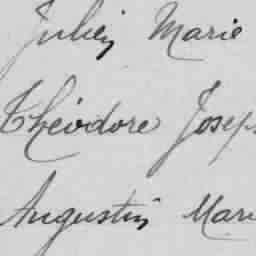 Julien Marie
Théodore Josep
Augustin Mari